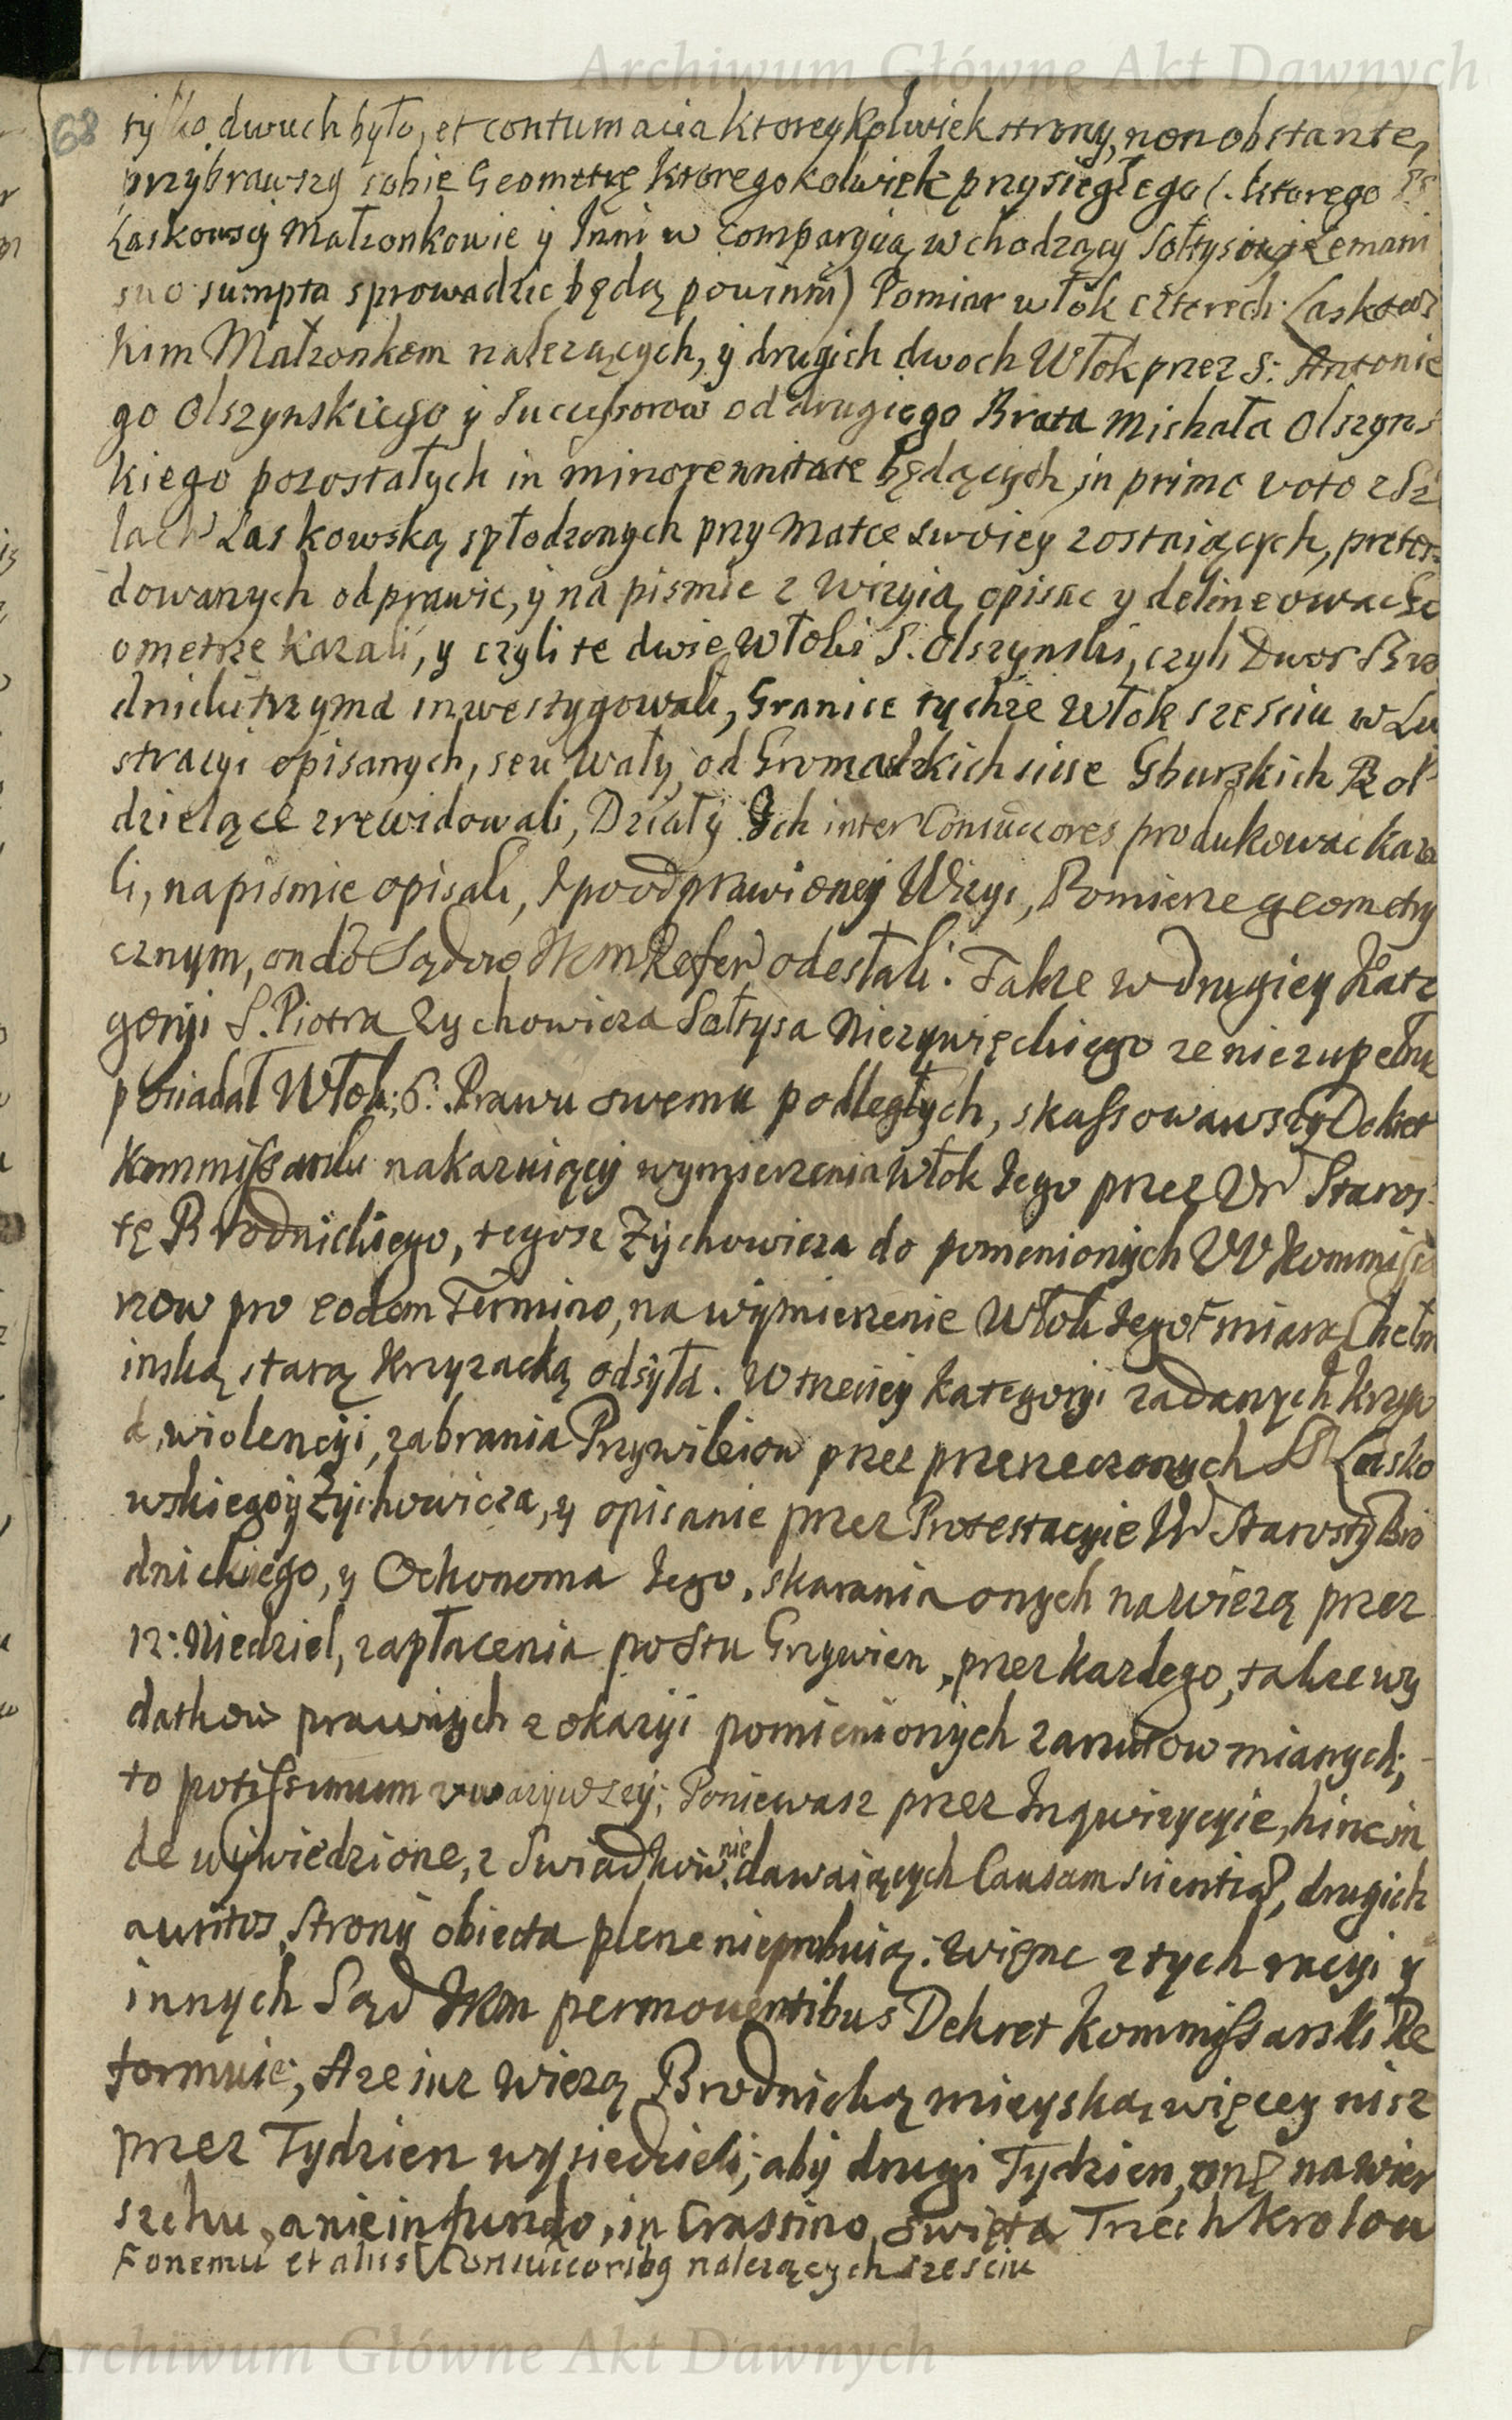 Archiwum Główne Akt Dawnych
68
tylko dwuch było, et contumacia ktoreykolwiek strony, non obstante,
przybrawszy sobie Geometrę ktoregokolwiek przysięgłego (. ktorego SS
Laskowscy Małzonkowie y Inni w comparycią wchodzący Sołtysi
suo sumpta sprowadzic będą powinni) Pomiar włok czterech Laskows
kim Małzonkom nalezących, y drugich dwoch Włok przez S: Antonie
go Olszynskiego y Successorow od drugiego Brata Michała Olszyns
kiego pozostałych in minorennitate będących, in primo voto z Sz
lach Laskowską spłodzonych przy Matce swoiey zostaiących, preten
dowanych odprawic, y na pismie z Wizyią opisac y delineowac Ge
ometrze kazali, y czyli te dwie Włoki S. Olszynski, czyli Dwor Bro
dnicki trzyma inwestygowali, Granice tychże Włok szesciu w Lu
stracyi opisanych, seu wały, od Gromadzkich siue Gburskich Rol
dzielące zrewidowali, Działy Ich inter Consuccores produkowac kaza
li, na pismie opisali, y po odprawioney Wizyi, Pomierze geometry
cznym, ondo Sądow Nem Refer odesłali. Takze w drugiey Kate
goryi S. Piotra Zychowicza Sołtysa Niezywięckiego ze niezupełnie
posiadał Włok: 6: Prawu swemu podległych, skassowawszy Dekret
Kommissarski nakazuiący wymierzenia Włok Jego przez W Staros
tę Brodnickiego, tegosz Zychowicza do pomienionych WW Kommissa
rzow pro eodem Termino, na wymierzenie Włok Jego F miarą Chełm
inską starą Krzyzacką odsyła. W trzeciey kategoryi zadanych krzyw
d, wiolencyi, zabrania Przywileiow przez przerzeczonych SS Lasko
wskiego y Zychowicza, y opisanie przez Protestacyie W Starosty Bro
dnickiego, y Oekonoma Jego, skarania onych na wiezą przez
12: Niedziel, zapłacenia po Stu Grzywien, przez kazdego, takze wy
datkow prawnych z okazyi pomienionych zarzutow mianych;
to potissimum zwazywszy; Poniewasz przez Inqwizycyie, hinc in
de wywiedzione, z Swiadkow nie dawaiących Causam scientiæ, drugich
auritos, Strony obiecta plene nieprobuią: więnc z tych racyi y
innych Sąd Nem permouentibus Dekret Kommissarski Re
formuie, A ze iuz wiezą Brodnicką mieyską więcey nisz
przez Tydzien wysiedzieli; aby drugi Tydzien, onę na wier
szchu, a nie in fundo, in Crastino, Swięta Trzech Krolow
F onemu et aliis Consuccoribq nalezących szesciu
Archiwum Główne Akt Dawnych